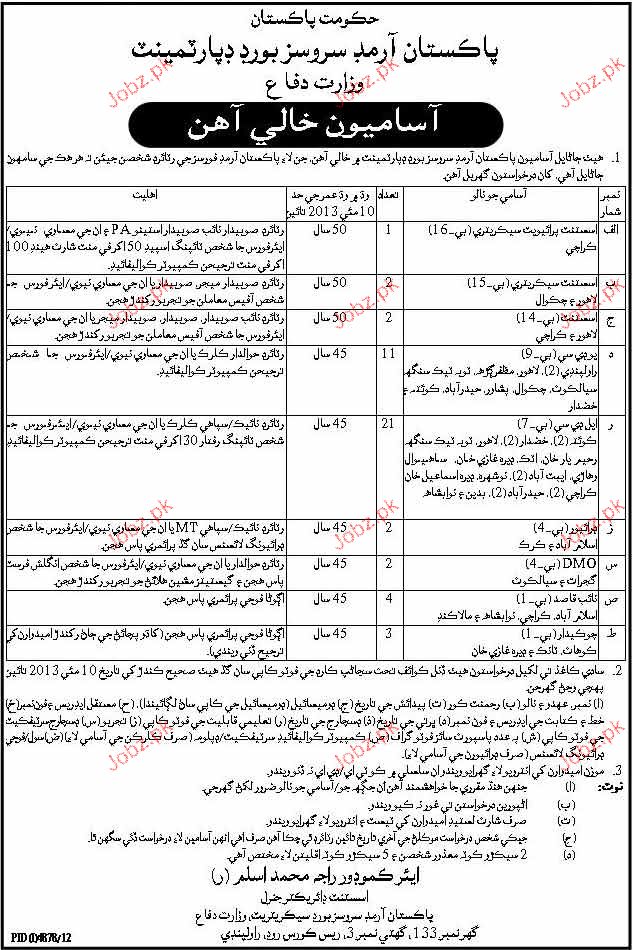 حڪومت پاڪستان
پاڪستان آرمڊ سروسز بورڊ ڊپارٽمينٽ
وزارت دفاع
آساميون خالي آهن
1. هيٺ ڄاڻايل آساميون پاڪستان آرمڊ سروسز بورڊ ڊپارٽمينٽ ۾ خالي آهن، جن لاءِ پاڪستان آرمڊ فورسز جي رٽائرڊ شخصن جيئن ته هر هڪ جي سامهون
ڄاڻايل آهي، کان درخواستون گهربل آهن.
نمبر شمار
آسامي جو نالو
تعداد
وڌ ۾ وڌ عمر جي حد 10 مئي 2013 تائين
اهليت
الف
اسسٽنٽ پرائيويٽ سيڪريٽري (بي-16)
ڪراچي
1
50 سال
رٽائرڊ صوبيدار نائب صوبيدار اسٽينو PA ۽ ان جي معياري نيوي/
ايئرفورس جا شخص ٽائپنگ اسپيڊ 50 اکر في منٽ شارٽ هينڊ 100
اکر في منٽ ترجيحن ڪمپيوٽر ڪواليفائيڊ.
ب
اسسٽنٽ سيڪريٽري (بي-15)
لاهور ۽ چڪوال
2
50 سال
رٽائرڊ صوبيدار ميجر، صوبيدار يا ان جي معياري نيوي/ايئرفورس جا
شخص آفيس معاملن جو تجربو رکندڙ هجن.
ج
اسسٽنٽ (بي-14)
لاهور ۽ ڪراچي
2
50 سال
رٽائرڊ نائب صوبيدار، صوبيدار، صوبيدار ميجر يا ان جي معياري نيوي/
ايئرفورس جا شخص آفيس معاملن جو تجربو رکندڙ هجن.
ه
يو ڊي سي (بي-9)
راولپنڊي (2)، لاهور، مظفر ڳڙهه، ٽوبه ٽيڪ سنگهه
سيالڪوٽ، چڪوال، پشاور، حيدرآباد، ڪوئٽه ۽
خضدار
11
45 سال
رٽائرڊ حوالدار ڪلارڪ يا ان جي معياري نيوي/ايئرفورس جا شخص
ترجيحن ڪمپيوٽر ڪواليفائيڊ.
ر
ايل ڊي سي (بي-7)
ڪوئٽه (2)، خضدار (2)، لاهور، ٽوبه ٽيڪ سنگهه
رحيم يار خان، اٽڪ، ڊيره غازي خان، ساهيوال
وهاڙي، ايبٽ آباد (2)، نوشهره، ڊيره اسماعيل خان
ڪراچي (2)، حيدرآباد (2)، بدين ۽ نوابشاهه
21
45 سال
رٽائرڊ نائيڪ/سپاهي ڪلارڪ يا ان جي معياري نيوي/ايئرفورس جا
شخص ٽائپنگ رفتار 30 اکر في منٽ ترجيحن ڪمپيوٽر ڪواليفائيڊ
ز
ڊرائيور (بي-4)
اسلام آباد ۽ ڪرڪ
2
45 سال
رٽائرڊ نائيڪ/سپاهي MT يا ان جي معياري نيوي/ايئرفورس جا شخص
ڊرائيونگ لائسنس سان گڏ پرائمري پاس هجن.
س
DMO (بي-4)
گجرات ۽ سيالڪوٽ
2
45 سال
رٽائرڊ حوالدار يا ان جي معياري نيوي/ايئرفورس جا شخص انگلش فرسٽ
پاس هجن ۽ گيسٽيٽنر مشين هلائڻ جو تجربو رکندڙ هجن.
ص
نائب قاصد (بي-1)
اسلام آباد، ڪراچي، نوابشاهه ۽ مالاڪنڊ
4
45 سال
اڳوڻا فوجي پرائمري پاس هجن.
ط
چوڪيدار (بي-1)
ڪوهاٽ، ٽانڪ ۽ ڊيره غازي خان
3
45 سال
اڳوڻا فوجي پرائمري پاس هجن (ڪاڌو پچائڻ جي ڄاڻ رکندڙ اميدوارن کي
ترجيح ڏني ويندي).
2. سادي ڪاغذ تي لکيل درخواستون هيٺ ڏنل ڪوائف تحت سڃاڻپ ڪارڊ جي فوٽو ڪاپي سان گڏ هيٺ صحيح ڪندڙ کي تاريخ 10 مئي 2013 تائين
پهچي وڃڻ گهرجن.
(ا) نمبر عهدو ۽ نالو (ب) رجمنٽ ڪور (ت) پيدائش جي تاريخ (ج) ڊوميسائيل (ڊوميسائيل جي ڪاپي سان لڳائيندا)، (ح) مستقل ايڊريس ۽ فون نمبر (خ)
خط ۽ ڪتابت جي ايڊريس ۽ فون نمبر (د) ڀرتي جي تاريخ (ذ) ڊسچارج جي تاريخ (ر) تعليمي قابليت جي فوٽو ڪاپي (ز) تجربو (س) ڊسچارج سرٽيفڪيٽ
جي فوٽو ڪاپي (ش) ٻه عدد پاسپورٽ سائز فوٽو گراف (ص) ڪمپيوٽر ڪواليفائيڊ سرٽيفڪيٽ/ڊپلومه (صرف ڪلارڪن جي آسامي لاءِ) (ض) سول/فوجي
ڊرائيونگ لائسنس (صرف ڊرائيورن جي آسامي لاءِ).
3. موزن اميدوارن کي انٽرويو لاءِ گهرايو ويندو ان سلسلي ۾ ڪو ٽي اي/ڊي اي نه ڏنو ويندو.
نوٽ: (ا) جنهن هنڌ مقرري جا خواهشمند آهن ان جڳهه جو/آسامي جو نالو ضرور لکڻ گهرجي.
(ب) اڻپورين درخواستن تي غور نه ڪيو ويندو.
(ت) صرف شارٽ لسٽيڊ اميدوارن کي ٽيسٽ ۽ انٽرويو لاءِ گهرايو ويندو.
(ج) جيڪي شخص درخواست موڪلڻ جي آخري تاريخ تائين رٽائرڊ ٿي چڪا آهن صرف اهي انهن آسامين لاءِ درخواست ڏئي سگهن ٿا.
(ه) 2 سيڪڙو ڪوٽه معذور شخصن ۽ 5 سيڪڙو ڪوٽه اقليتن لاءِ مختص آهي.
ايئر ڪموڊور راجه محمد اسلم (ر)
اسسٽنٽ ڊائريڪٽر جنرل
پاڪستان آرمڊ سروسز بورڊ سيڪريٽريٽ، وزارت دفاع
گهر نمبر 133، گهٽي نمبر 3، ريس ڪورس روڊ، راولپنڊي
PID (I) 4878/12
Jobz.pk